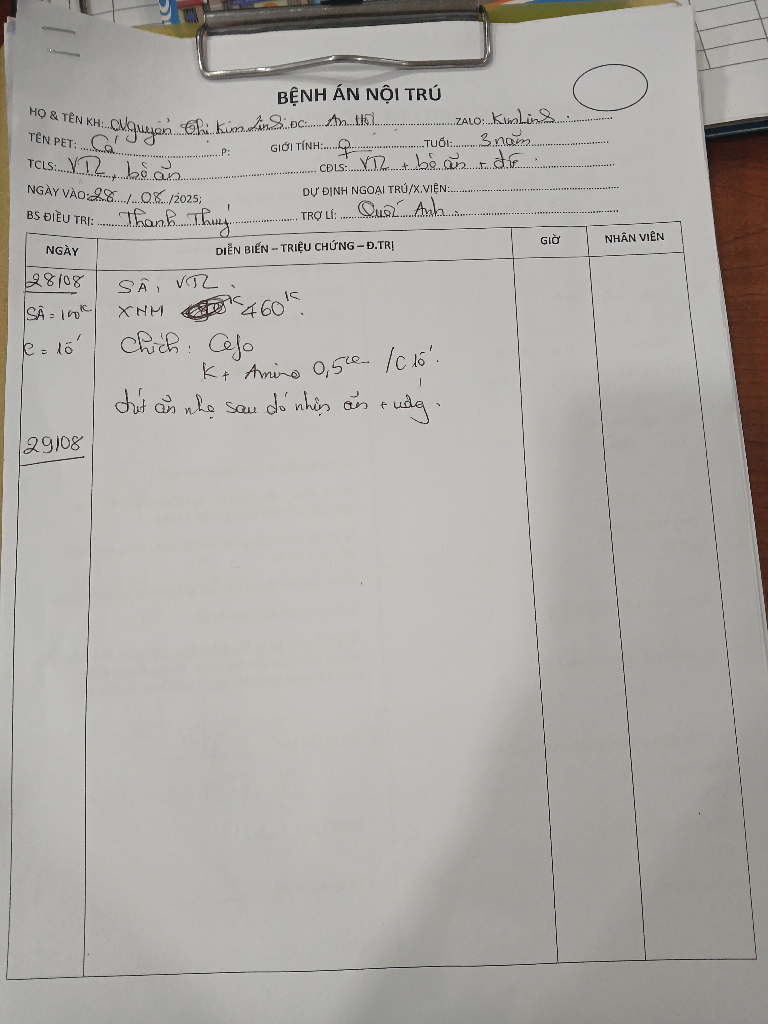 BỆNH ÁN NỘI TRÚ
HỌ & TÊN KH: Nguyễn Thị Kim ĐC: An ZALO:
TÊN PET: Cá P: GIỚI TÍNH: ♀ TUỔI: 3 năm
TCLS: VTL, bỏ ăn CĐLS: VTL + bỏ ăn + đẻ
NGÀY VÀO: 28 / 08 /2025; DỰ ĐỊNH NGOẠI TRÚ/X.VIỆN:
BS ĐIỀU TRỊ: Thanh Thuý TRỢ LÍ: Quốc Anh
NGÀY DIỄN BIẾN – TRIỆU CHỨNG – Đ.TRỊ GIỜ NHÂN VIÊN
28/08 SÂ, VTL.
SÂ = 100K XNM 460K.
C = 10' Chích: Cefo
K + Amino 0,5cc /C 10'.
đút ăn nhẹ sau đó nhịn ăn +
29/08